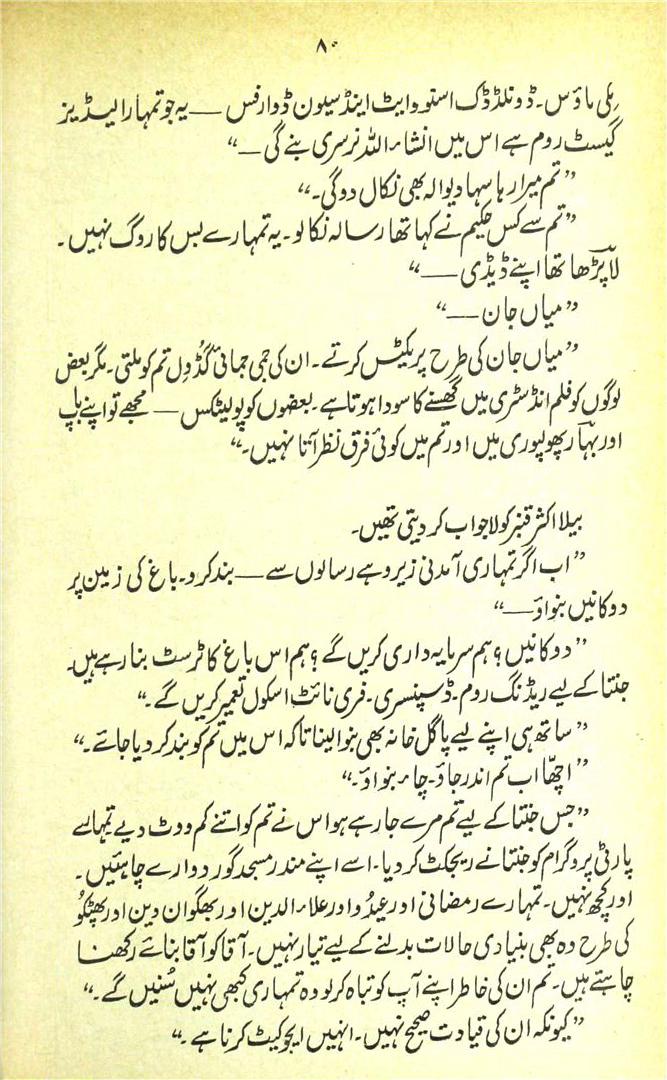 ۸۰
مِلی ماؤس۔ ڈونلڈ ڈک اسنو وایٹ اینڈ سیون ڈوارفس — یہ جو تمہارا لیڈیز
گیسٹ روم ہے اس میں انشاء اللہ نرسری بنے گی —“
”تم میرا رہا سہا دیوالہ بھی نکال دو گی۔“
”تم سے کس حکیم نے کہا تھا رسالہ نکالو۔ یہ تمہارے بس کا روگ نہیں۔
لا پڑھا تھا اپنے ڈیڈی —“
”میاں جان —“
”میاں جان کی طرح پریکٹس کرتے۔ ان کی جمی جمائی گڈ وِل تم کو ملتی۔ مگر بعض
لوگوں کو فلم انڈسٹری میں گھسنے کا سودا ہوتا ہے۔ بعضوں کو پولیٹکس — مجھے تو اپنے باپ
اور بہار پھولپوری میں اور تم میں کوئی فرق نظر آتا نہیں۔“
بیلا اکثر قنبر کو لاجواب کر دیتی تھیں۔
”اب اگر تمہاری آمدنی زیرو ہے رسالوں سے — بند کرو۔ باغ کی زمین پر
دوکانیں بنواؤ —“
”دوکانیں؟ ہم سرمایہ داری کریں گے؟ ہم اس باغ کا ٹرسٹ بنا رہے ہیں۔
جنتا کے لیے ریڈنگ روم۔ ڈسپنسری۔ فری نائٹ اسکول تعمیر کریں گے۔“
”ساتھ ہی اپنے لیے پاگل خانہ بھی بنوا لینا تاکہ اس میں تم کو بند کر دیا جائے۔“
”اچھّا اب تم اندر جاؤ۔ چاء بنواؤ۔“
”جس جنتا کے لیے تم مرے جا رہے ہو اس نے تم کو اتنے کم ووٹ دیے تمہارے
پارٹی پروگرام کو جنتا نے ریجکٹ کر دیا۔ اسے اپنے مندر مسجد گوردوارے چاہئیں۔
اور کچھ نہیں۔ تمہارے رمضانی اور عیدُو اور علاء الدین اور بھگوان دین اور پھٹکُو
کی طرح وہ بھی بنیادی حالات بدلنے کے لیے تیار نہیں۔ آقا کو آقا بنائے رکھنا
چاہتے ہیں۔ تم ان کی خاطر اپنے آپ کو تباہ کر لو وہ تمہاری کبھی نہیں سُنیں گے۔“
”کیونکہ ان کی قیادت صحیح نہیں۔ انہیں ایجوکیٹ کرنا ہے۔“